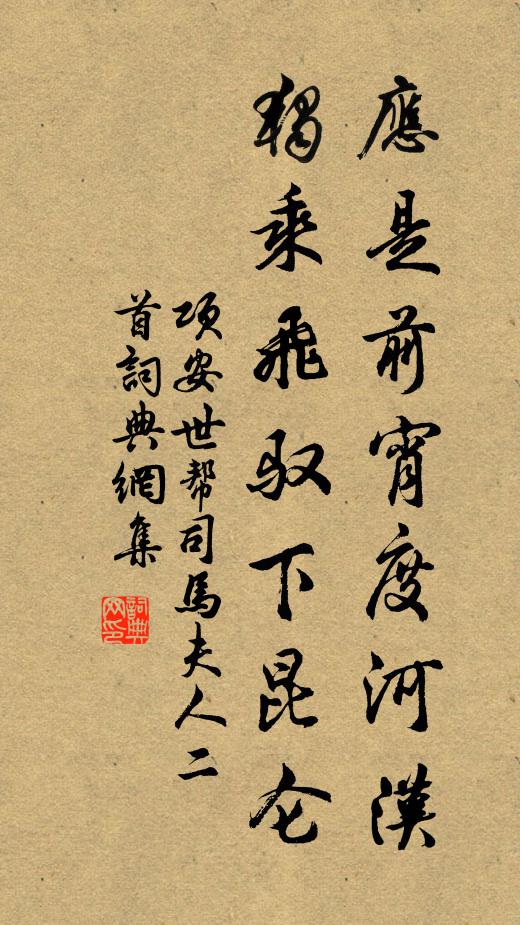 應是前宵度河漢
獨乘飛驭下昆仑
项安世帮司馬夫人二
首詞典網集
詞典网印